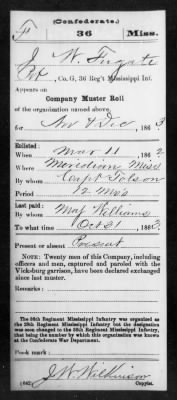 (Confederate.)
F 36 Miss.
J. W. Fugate
Pvt, Co. G, 36 Reg't Mississippi Inf.
Appears on
Company Muster Roll
of the organization named above,
for Nov & Dec, 1863
Enlisted:
When Mar 11, 1862
Where Meridian Miss
By whom Capt
Period 12 Mos
Last paid:
By whom Maj Williams
To what time Oct 31, 1863.
Present or absent Present
NOTE: Twenty men of this Company, including
officers and men, captured and paroled with the
Vicksburg garrison, have been declared exchanged
since last muster.
Remarks:
The 36th Regiment Mississippi Infantry was organized as
the Regiment Mississippi Infantry but the designation
was soon changed to the 36th Regiment Mississippi Infantry, that
being the number by which this organization was known
at the Confederate War Department.
Book mark:
(642) J W Wilkinson
Copyist.